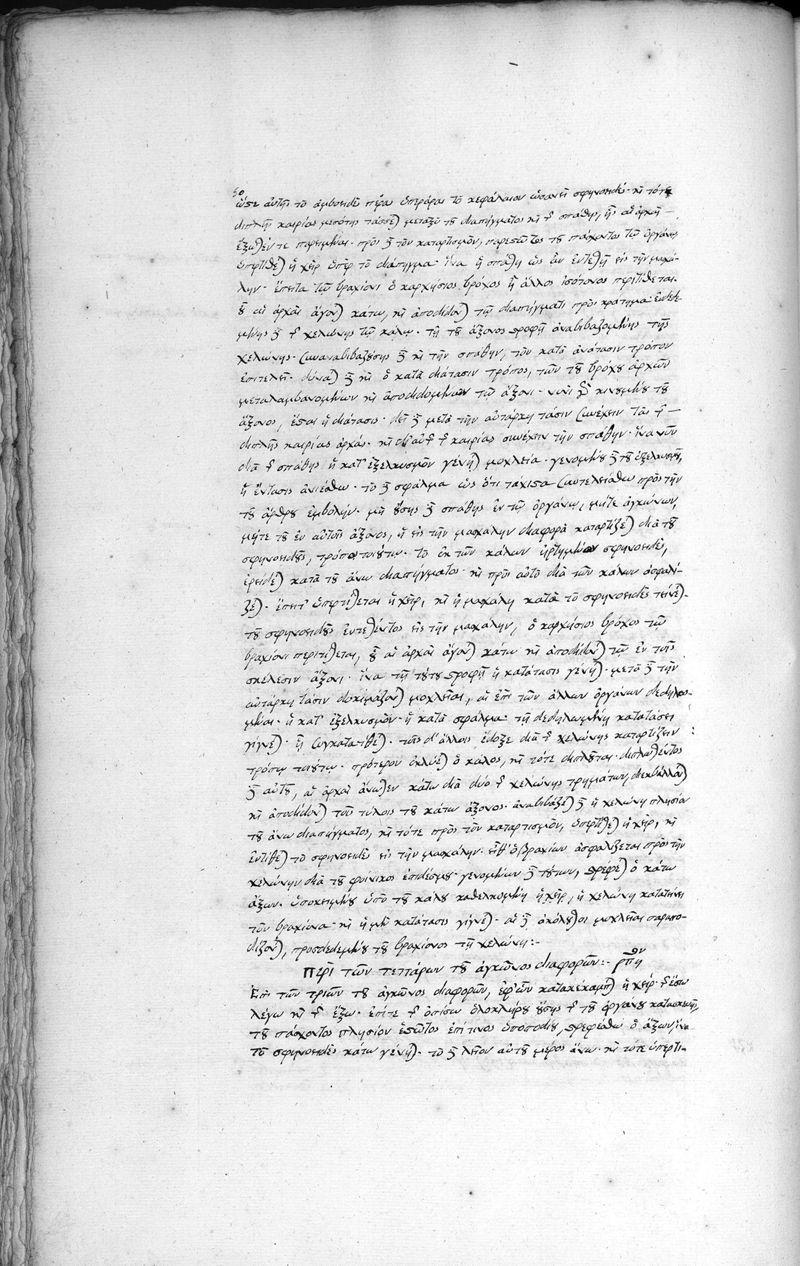 ὥστε αὐτῆς τὸ ἀμβοειδὲς πέρας ὑπεράραι τὸ κεφάλαιον ὡσανεὶ σφηνοειδές· καὶ τότε
διπλῆς καιρίας μεσότης τάσσεται μεταξὺ τοῦ διαπήγματος καὶ τῆς σπάθης, ἧς αἱ ἀρχαὶ
πρὸς δὲ τὸν καταρτισμὸν, παρεστῶτος τοῦ πάσχοντος τῷ ὀργάνῳ
ὑπερτίθεται ἡ χεὶρ ὑπὲρ τὸ διάπηγμα· ἵνα ἡ σπάθη ὡς ὂν ἐντεθῇ εἰς τὴν μασχά-
λην· ἔπειτα τῷ βραχίονι ὁ καρχήσιος βρόχος ἢ ἄλλος ἰσότονος περιτίθεται·
οὗ αἱ ἀρχαὶ ἄγονται κάτω, καὶ ἀποδίδονται τῷ διαπήγματι πρὸς κράτημα·
τῆς χελώνης τῷ κάλῳ· τῇ τοῦ ἄξονος στροφῇ ἀναβιβαζομένης τῆς
χελώνης· συναναβιβαζούσης δὲ καὶ τὴν σπάθην, τὸν κατὰ ἀνάτασιν τρόπον
ἐπιτελεῖν· δύναται δὲ καὶ ὁ κατὰ διάτασιν τρόπος, τῶν τοῦ βρόχου ἀρχῶν
μεταλαμβανομένων καὶ ἀποδιδομένων τῷ ἄξονι· κινουμένου τοῦ
ἄξονος, ἔσται ἡ διάτασις· δεῖ δὲ μετὰ τὴν αὐτάρκη τάσιν συνέχειν τὰς τῆς
διπλῆς καιρίας ἀρχάς· καὶ δι' αὐτῆς τῆς καιρίας συνέχειν τὴν σπάθην· ἵνα νῦν
διὰ τῆς σπάθης ἡ κατ' ἐξελκυσμὸν γένηται μοχλεία· γενομένου δὲ τοῦ ἐξελκυσμοῦ,
ἡ ἔντασις ἀνιέσθω· τὸ δὲ σφάλμα ὡς ὅτι τάχιστα συντελείσθω πρὸς τὴν
τοῦ ἄρθρου ἐμβολήν· μὴ οὔσης δὲ σπάθης ἐν τῷ ὀργάνῳ, μήτε ἀγκώνων,
μήτε τοῦ ἐν αὐτοῖς ἄξονος, ἡ εἰς τὴν μασχάλην διαφορὰ καταρτίζεται διὰ τοῦ
σφηνοειδοῦς, τρόπῳ τοιούτῳ· τὸ ἐκ τῶν κάλων ἠρτημένον σφηνοειδὲς,
ἐρείδεται κατὰ τοῦ ἄνω διαπήγματος· καὶ πρὸς αὐτὸ διὰ τῶν κάλων ἀσφαλί-
ζεται· ἔπειτ' ὑπερτίθεται ἡ χεὶρ, καὶ ἡ μασχάλη κατὰ τὸ σφηνοειδὲς τείνεται·
τοῦ σφηνοειδοῦς ἐντεθέντος εἰς τὴν μασχάλην, ὁ καρχήσιος βρόχος τῷ
βραχίονι περιτίθεται, οὗ αἱ ἀρχαὶ ἄγονται κάτω καὶ ἀποδίδονται τῷ ἐν τοῖς
σκέλεσιν ἄξονι· ἵνα τῇ τούτου στροφῇ ἡ κατάτασις γένηται· μετὰ δὲ τὴν
αὐτάρκη τάσιν δοκιμάζονται μοχλεῖαι, αἱ ἐπὶ τῶν ἄλλων ὀργάνων δεδηλω-
μέναι· ἡ κατ' ἐξελκυσμὸν· ἡ κατὰ σφάλμα· τῇ δεδηλωμένῃ κατατάσει
γίνεται· ἢ συγκατατίθεται· τοῖς δ' ἄλλοις ἔδοξε διὰ τῆς χελώνης καταρτίζειν
τρόπῳ τοιούτῳ· πρότερον ἐκλύεται ὁ κάλος, καὶ τότε διπλοῦται· διπλωθέντος
δὲ αὐτοῦ, αἱ ἀρχαὶ ἄνωθεν κάτω διὰ δύο τῆς χελώνης τρημάτων, διεκβάλλονται
καὶ ἀποδίδονται τοῖς τύλοις τοῦ κάτω ἄξονος· ἀναβιβάζεται δὲ ἡ χελώνη πλησίον
τοῦ ἄνω διαπήγματος, καὶ τότε πρὸς τὸν καταρτισμὸν, ὑπερτίθεται ἡ χεὶρ, καὶ
ἐντίθεται τὸ σφηνοειδὲς εἰς τὴν μασχάλην· εἶθ' ὁ βραχίων ἀσφαλίζεται πρὸς τὴν
χελώνην διὰ τοῦ φοίνικος ἐπιδέσμου· γενομένων δὲ τούτων, στρέφεται ὁ κάτω
ἄξων· ὑποκειμένου ὑπὸ τοῦ κάλου καθελκομένη ἡ χεὶρ, ἡ χελώνη κατατείνει
τὸν βραχίονα· καὶ ἡ μὲν κατάτασις γίνεται· αἱ δὲ ἀκόλουθοι μοχλεῖαι παρεπο-
δίζονται, προσδεδεμένου τοῦ βραχίονος τῇ χελώνῃ:-
Περὶ τῶν τεττάρων τοῦ ἀγκῶνος διαφορῶν:-
Ἐπὶ τῶν τριῶν τοῦ ἀγκῶνος διαφορῶν, ἐφ' ὧν κατακέκαμπται ἡ χεὶρ· τῆς ἔσω
λέγω καὶ τῆς ἔξω· ἐπί τε τῆς ὀπίσω ὁλοκλήρου οὔσης τῆς τοῦ ὀργάνου κατασκευῆς,
τοῦ πάσχοντος πλησίον ἑστῶτος ἐπί τινος ὑποποδίου, στρεφέσθω ὁ ἄξων ἵνα
τὸ σφηνοειδὲς κάτω γένηται· τὸ δὲ λεῖον αὐτοῦ μέρος ἄνω· καὶ τότε ὑπερτι-